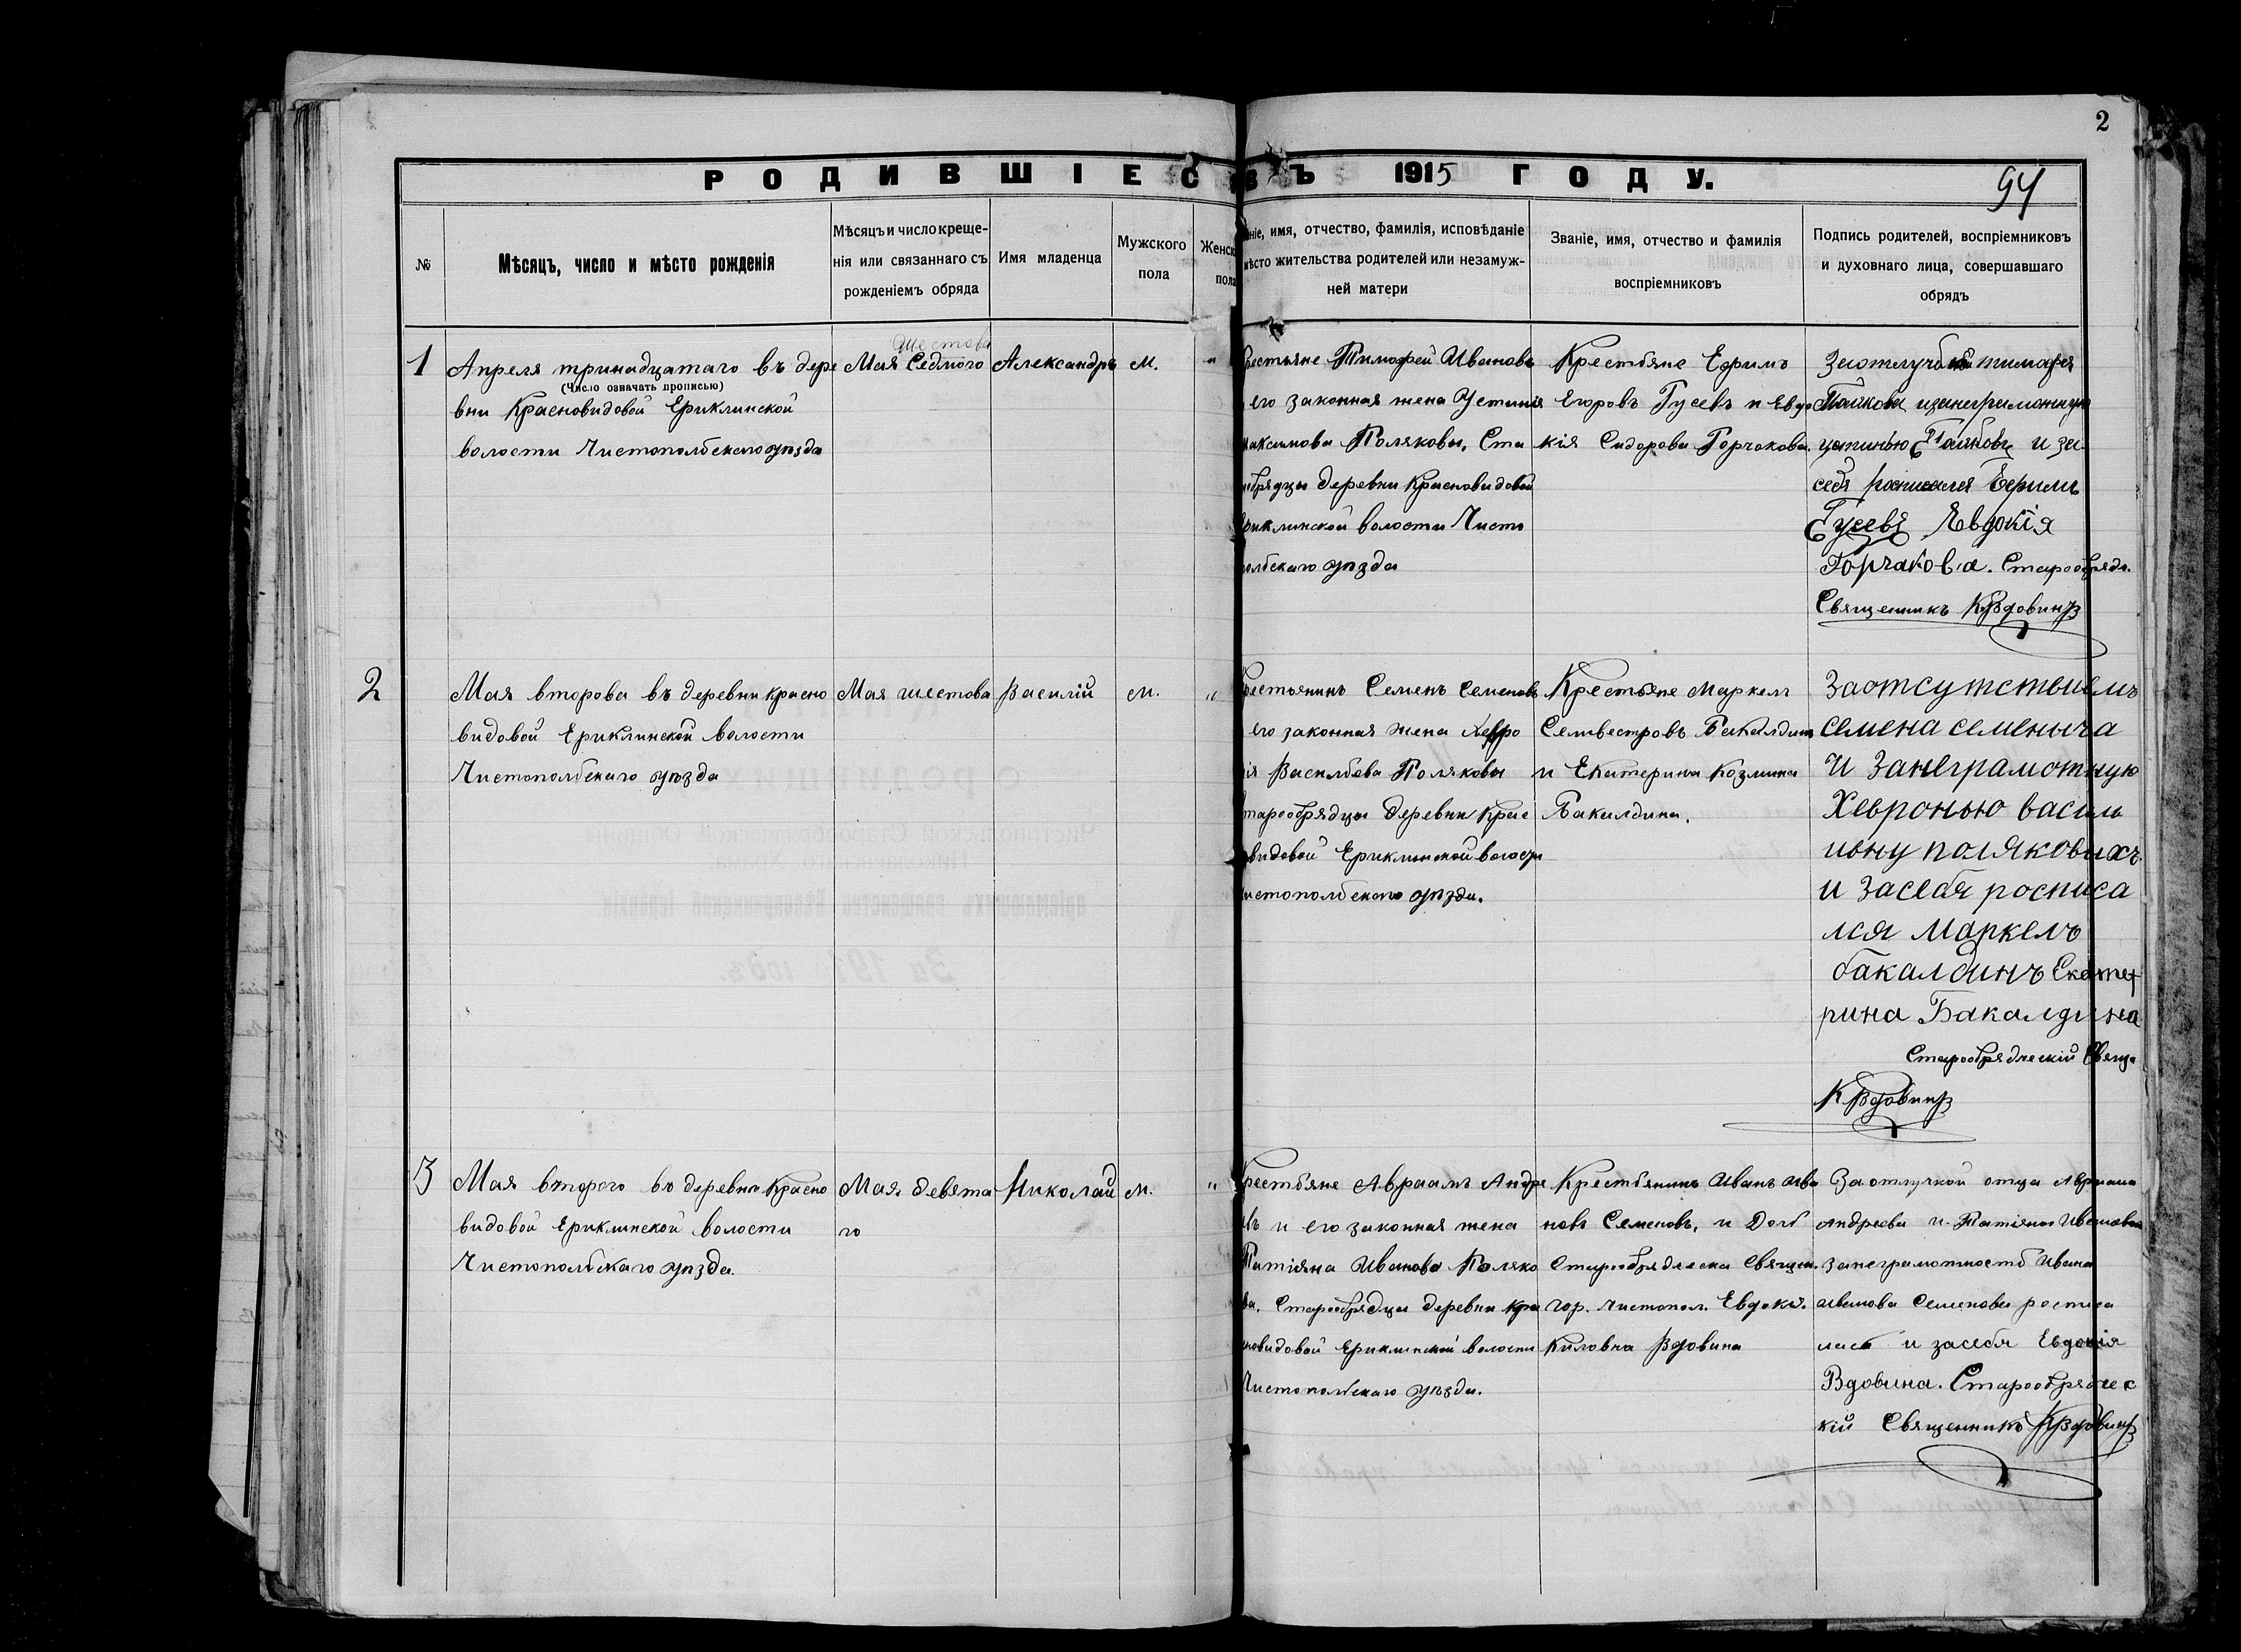 2
РОДИВШІЕС ВЪ 1915 ГОДУ.
94
№
Мѣсяцъ, число и мѣсто рожденія
Мѣсяцъ и число креще-
нія или связаннаго съ
рожденіемъ обряда
Имя младенца
Мужского
пола
Женск
пола
ніе, имя, отчество, фамилія, исповѣданіе
мѣсто жительства родителей или незамуж-
ней матери
Званіе, имя, отчество и фамилія
воспріемниковъ
Подпись родителей, воспріемниковъ
и духовнаго лица, совершавшаго
обрядъ
1
Апреля тринадцатаго въ дере
(Число означать прописью)
вни Красновидовой Ериклинской
волости Чистопольскаго уѣзда
шестова
Мая Седмого
Александръ
м.
"
рестьяне Тимофей Ивановъ
его законная жена Устинія
максимова Поляковы, Ста
обрядцы деревни Красновидовой
риклинской волости Чисто
польскаго уѣзда
Крестьяне Ефримъ
Егоровъ Гусевъ и Евдо
кія Сидорова Горчакова.
тимафея
и за
себя росписался Ефримъ
Гусевъ Явдокія
Горчакова. Старообряд.
Священикъ К Вдовинъ
2
Мая второва въ деревни красно
видовой Ериклинской волости
Чистопольскаго уѣзда
Мая шестова
Василій
м.
"
рестьянинъ Семенъ Семеновъ
его законная жена Хевро
ія Васильева Поляковы
тарообрядцы деревни Крас
видовой Ериклинской волости
истопольскаго уѣзда.
Крестьяне Маркелъ
Селивестровъ Бакалдинъ
и Екатерина Козмина
Бакалдина.
Заотсутствиемъ
семена семеныча
И Занеграмотную
Хевронью василь
ивну поляковыхъ
и Засебя росписа
лся Маркелъ
бакалдинъ Екате
рина Бакалдина
Старообрядческій Свящ.
К Вдовинъ
3
Мая второго въ деревни Красно
видовой Ериклинской волости
Чистопольскаго уѣзда.
Мая девята
го
Николай
м.
"
рестьяне Авраамъ Андре
въ и его законная жена
Татіяна Иванова Поляко
вы. Старообрядцы деревни кра
новидовой Ериклинской волости
Чистопольскаго уѣзда.
Крестьянинъ Иванъ Ива
новъ Семеновъ, и Доч
Старообрядческа Священ.
гор. Чистопол. Евдокія.
Киловна Вдовина
За отлучкой отца Авраама
Андреева и Татіяна Иванова
занеграмотность Ивана
Иванова Семенова росписа
лась и засебя Евдокія
Вдовина. Старообрядчес
кій Священникъ К Вдовинъ